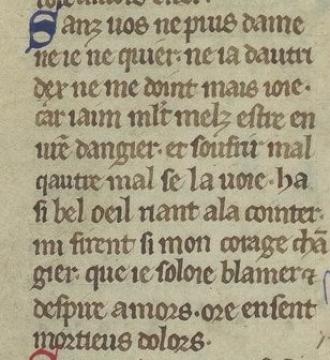 Sanz uos ne puis dame
ne ie ne quier· ne ia dautre
dex ne me doint mais ioie·
car iaim mlt melz estre en
ure dangier· et soufrir mal
qautre mal se la uoie· ha
si bel oeil riant ala cointer·
mi firent si mon corage chā
gier· que ie soloie blamer ⁊
despire amors· ore en sent
morticus dolors·